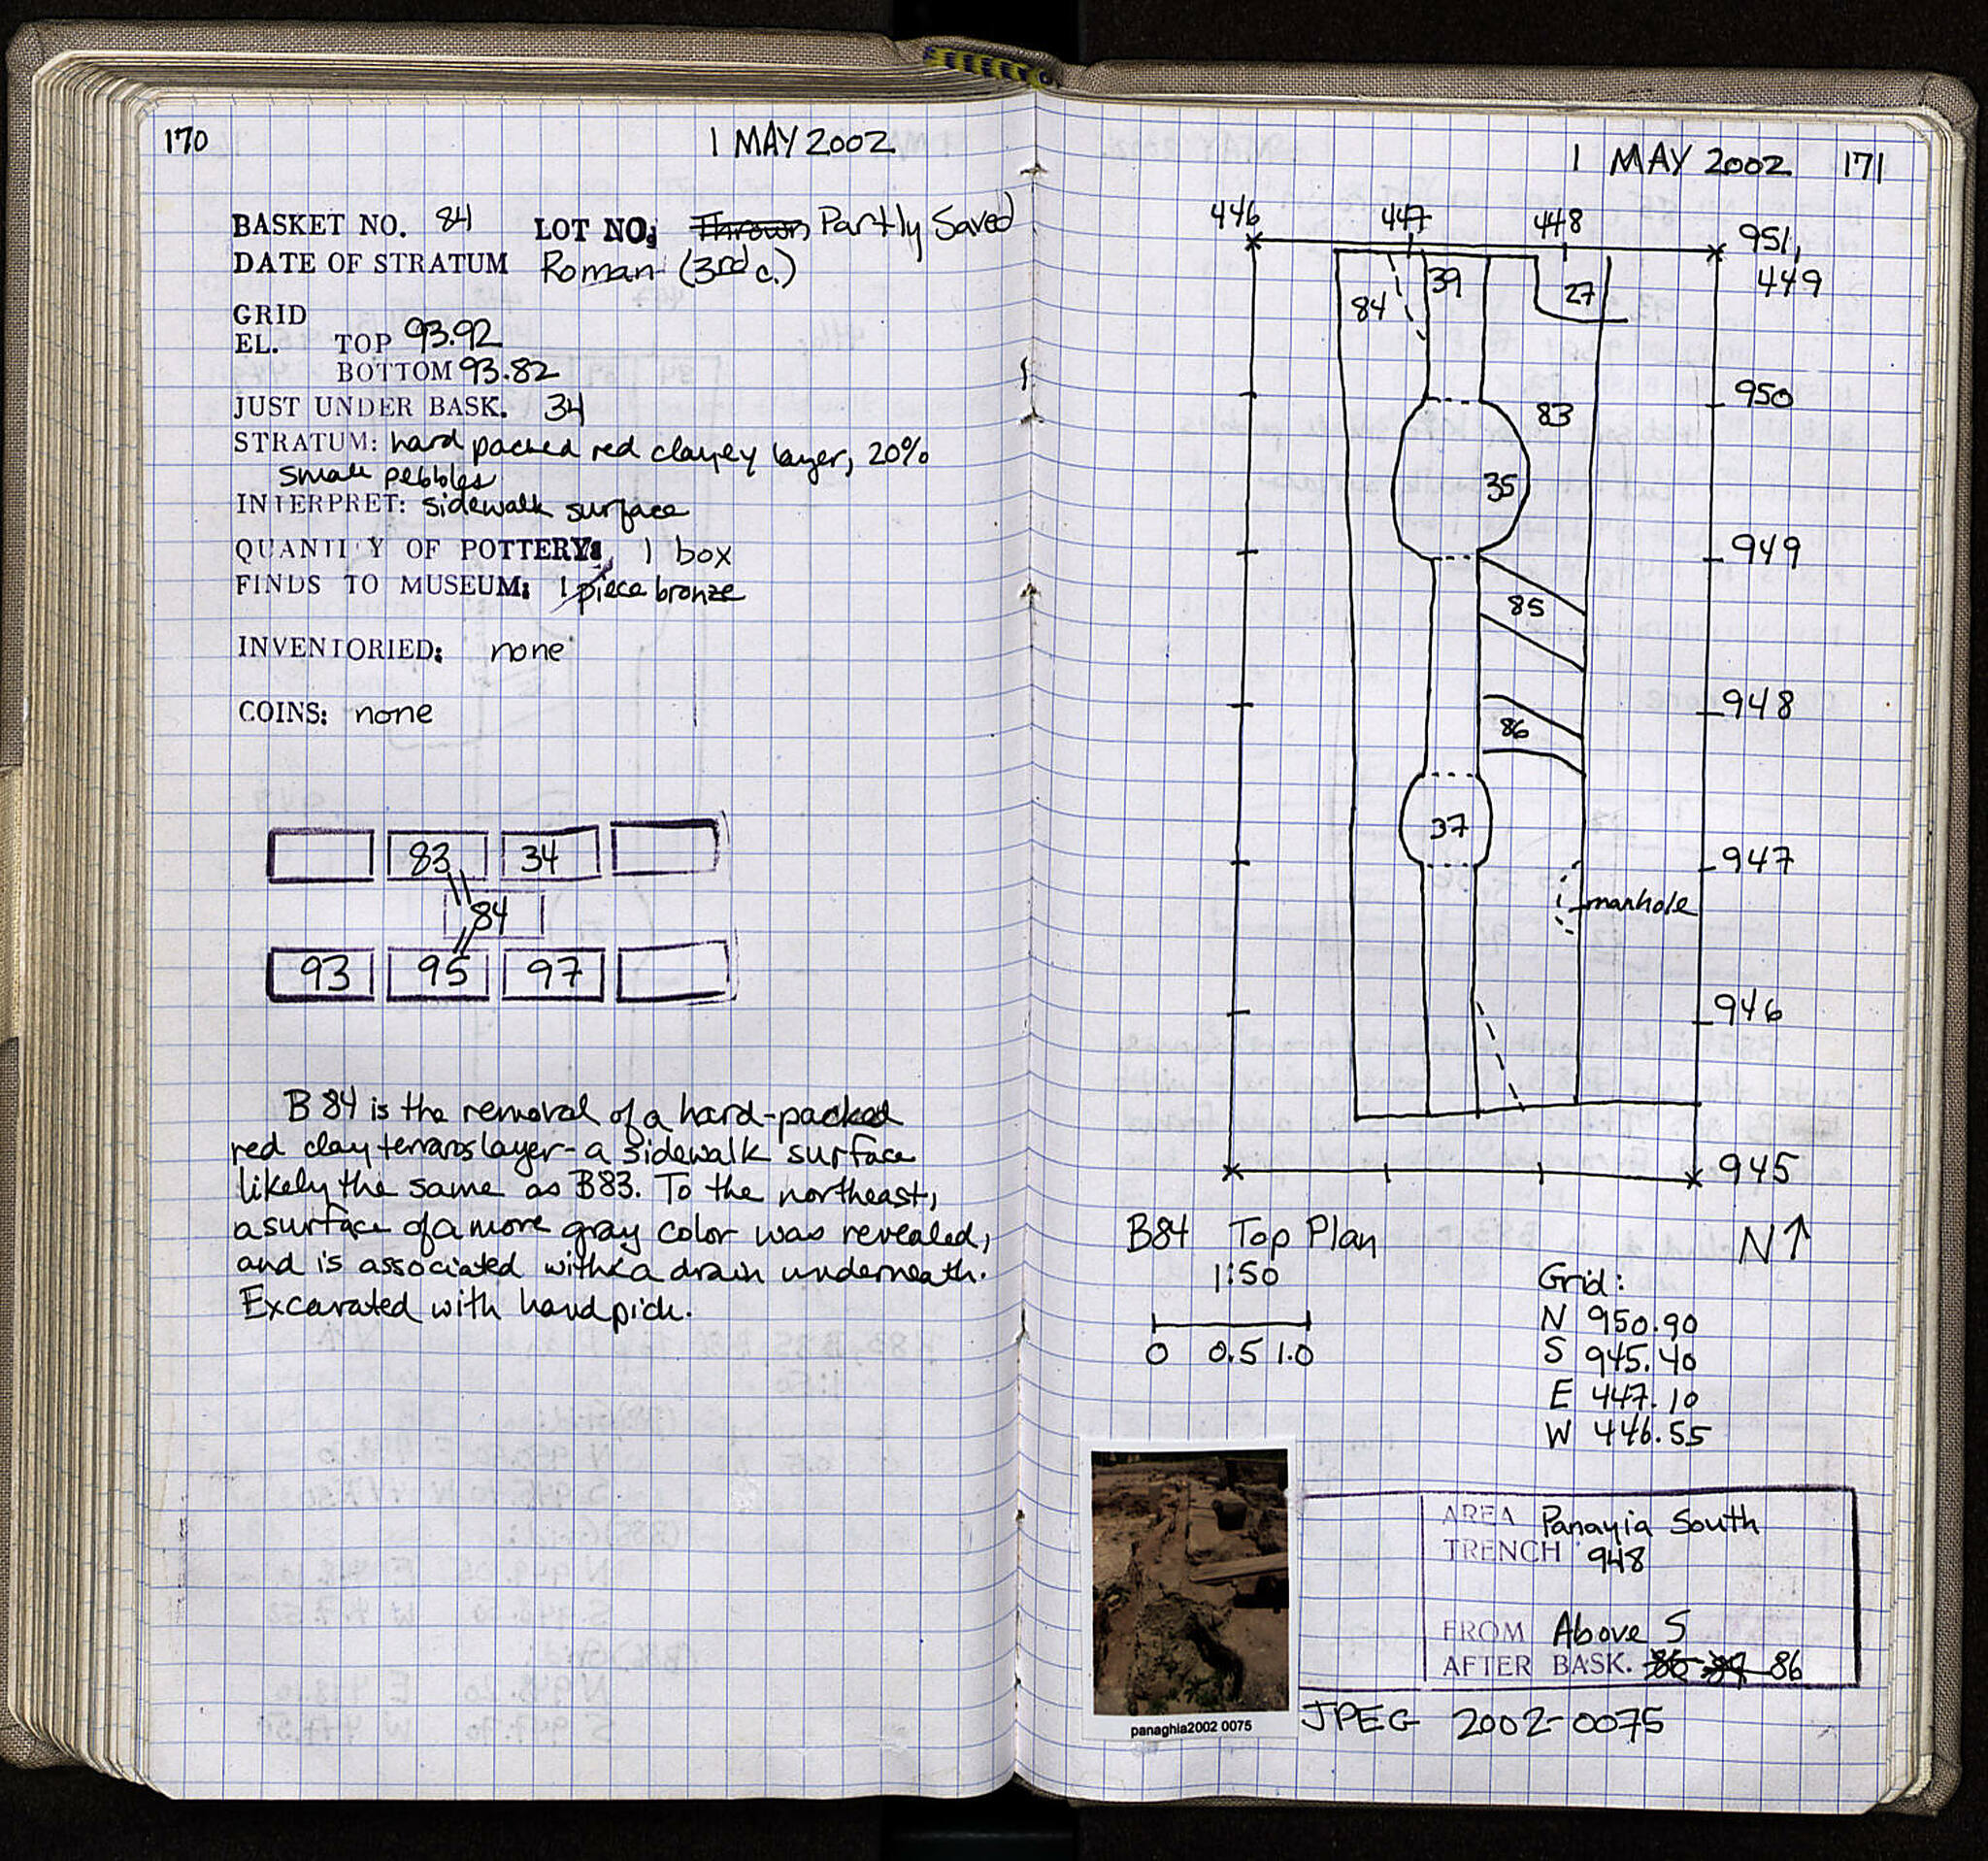 170
1 MAY 2002
BASKET NO. 84 LOT NO: Thrown Partly Saved
DATE OF STRATUM Roman (3rd c.)
GRID
EL. TOP 93.92
BOTTOM 93.82
JUST UNDER BASK. 34
STRATUM: hard packed red clayey layer, 20%
small pebbles
INTERPRET: sidewalk surface
QUANTITY OF POTTERY: 1 box
FINDS TO MUSEUM: 1 piece bronze
INVENTORIED: none
COINS: none
83 34
84
93 95 97
B 84 is the removal of a hard-packed
red clay terraros layer - a sidewalk surface
likely the same as B83. To the northeast,
a surface of a more gray color was revealed,
and is associated with a drain underneath.
Excavated with handpick.
1 MAY 2002 171
446 447 448 951,
449
84 39 27
950
83
35
949
85
948
86
37
947
manhole
946
945
B84 Top Plan
1:50
0 0.5 1.0
N↑
Grid:
N 950.90
S 945.40
E 447.10
W 446.55
panaghia2002 0075
AREA Panayia South
TRENCH 948
FROM Above S
AFTER BASK. 86
JPEG 2002-0075